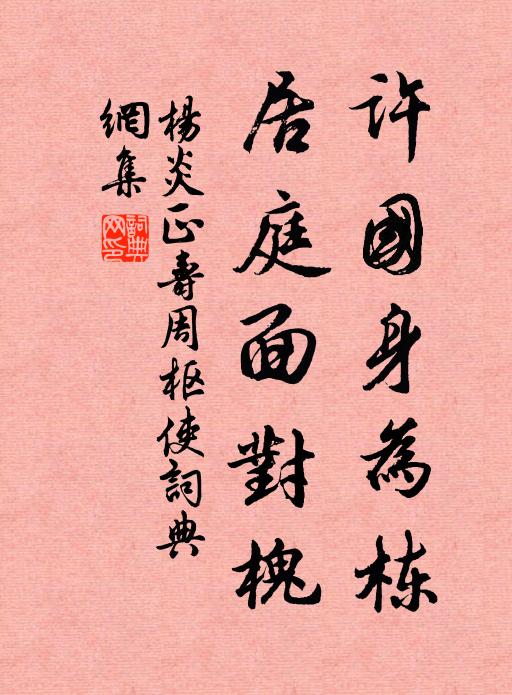 許國身為栋
居庭面對槐
楊炎正壽周枢使詞典
網集
詞典網印